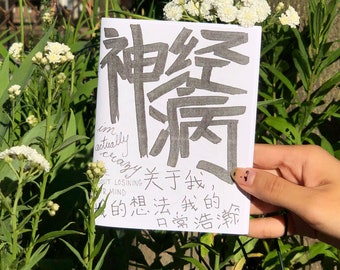 神经病
im
actually
crazy
LOSINING
MIND
关于我，
的想法 我的
日常浩瀚